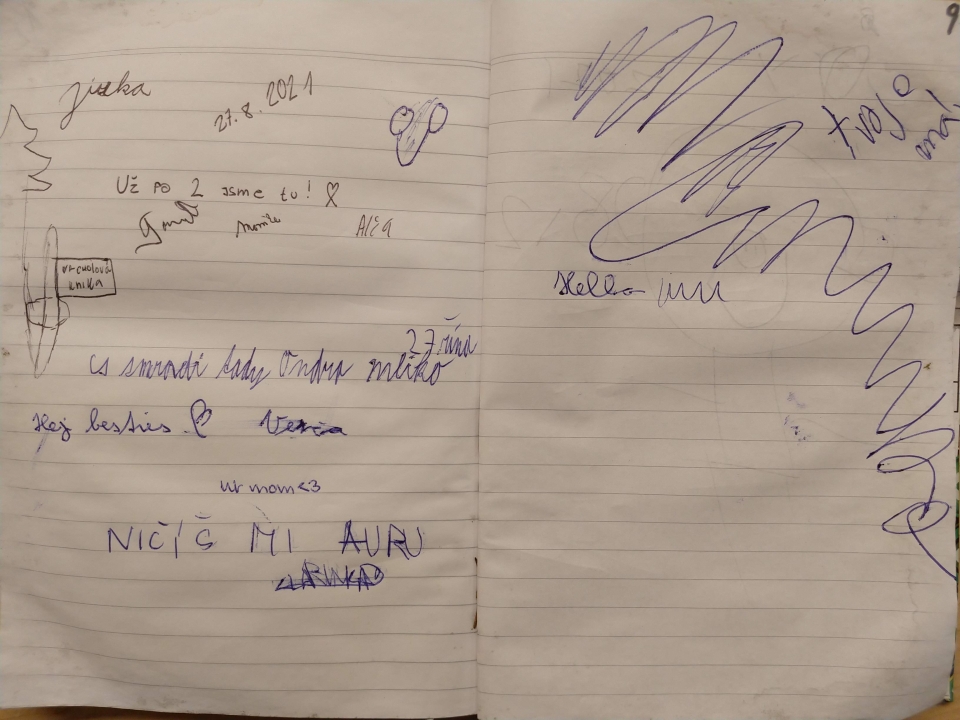 jiska
27.8.2021
Už po 2 jsme tu!
Alča
vrcholová
kniha
27. října
cs smradi tady Ondra mlíko
Hej besties.
ur mom <3
NIČÍŠ MI AURU
9
tvojo
Hello